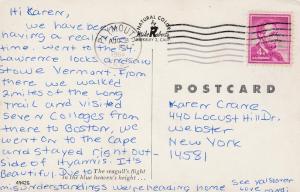 Hi Karen,
We have been
having a real
time. went to the St.
Lawrence locks and saw
Stowe Vermont. From
there, we walked
2 miles of the long
trail and visited
Seven Colleges from
there to Boston, we
went on to The Cape
and stayed right out-
side of Hyannis. It's
Beautiful. Due to
misunderstandings we're heading home
see ya soon
Love
PLYMOUTH
NATURAL COLOR
by
Mike Roberts
BERKELEY 2, CALIF.
POSTCARD
Karen Crane
440 Locust Hill Dr.
Webster
New York
14581
The seagull's flight
in the blue heaven's height . . .